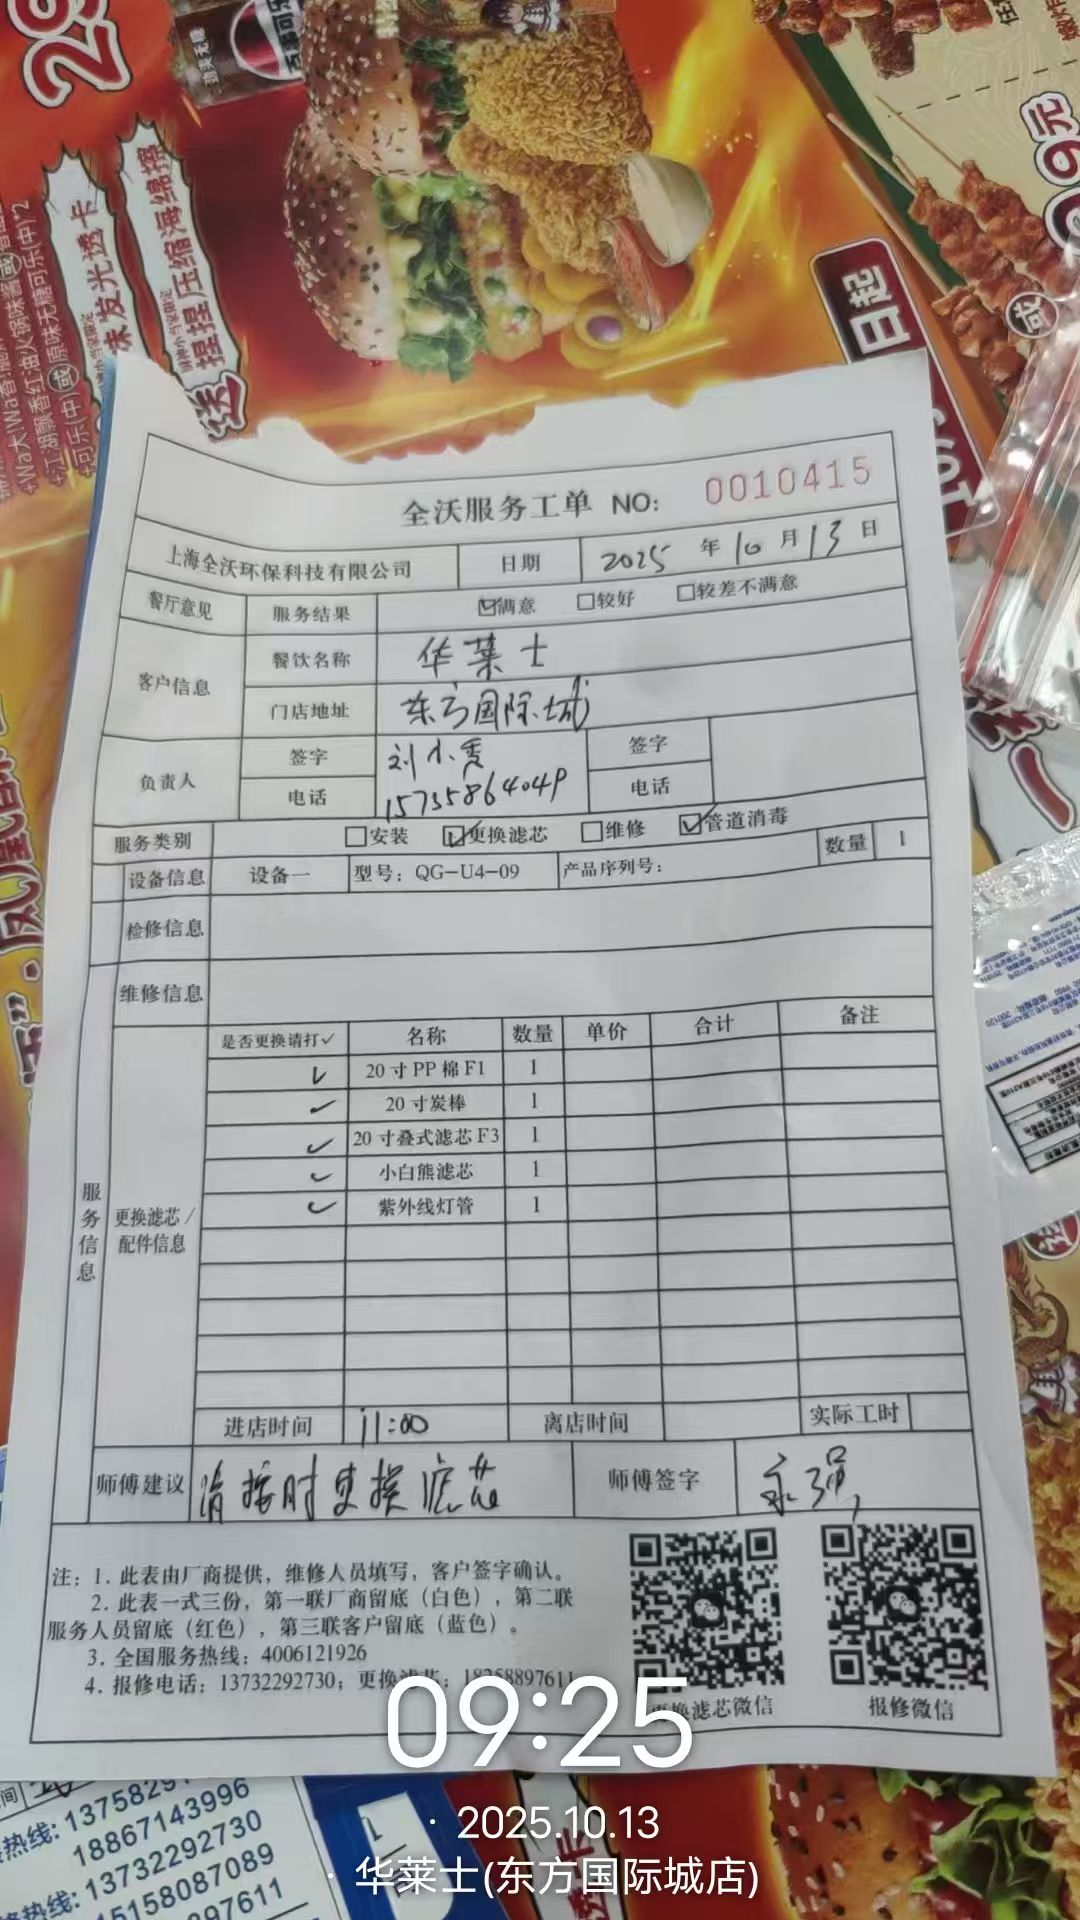 29
袜发光透卡
捏捏压缩海绵擦
送
日起
9.9元
或
全沃服务工单 NO: 0010415
上海全沃环保科技有限公司 日期 2025 年 10 月 13 日
餐厅意见 服务结果 ☑满意 □较好 □较差不满意
客户信息 餐饮名称 华莱士
门店地址 东方国际城
负责人 签字 刘小秀 签字
电话 15735864049 电话
服务类别 □安装 ☑更换滤芯 □维修 ☑管道消毒
设备信息 设备一 型号：QG-U4-09 产品序列号： 数量 1
检修信息
维修信息
服务信息
更换滤芯/配件信息
是否更换请打✓ 名称 数量 单价 合计 备注
✓ 20寸PP棉F1 1
✓ 20寸炭棒 1
✓ 20寸叠式滤芯F3 1
✓ 小白熊滤芯 1
✓ 紫外线灯管 1
进店时间 11:00 离店时间 实际工时
师傅建议 请按时更换滤芯 师傅签字 永强
注：1. 此表由厂商提供，维修人员填写，客户签字确认。
2. 此表一式三份，第一联厂商留底（白色），第二联
服务人员留底（红色），第三联客户留底（蓝色）。
3. 全国服务热线：4006121926
4. 报修电话：13732292730；更换滤芯：18258897611
更换滤芯微信 报修微信
09:25
· 2025.10.13
· 华莱士(东方国际城店)
热线: 13758291
18867143996
热线: 13732292730
15158087089
97611